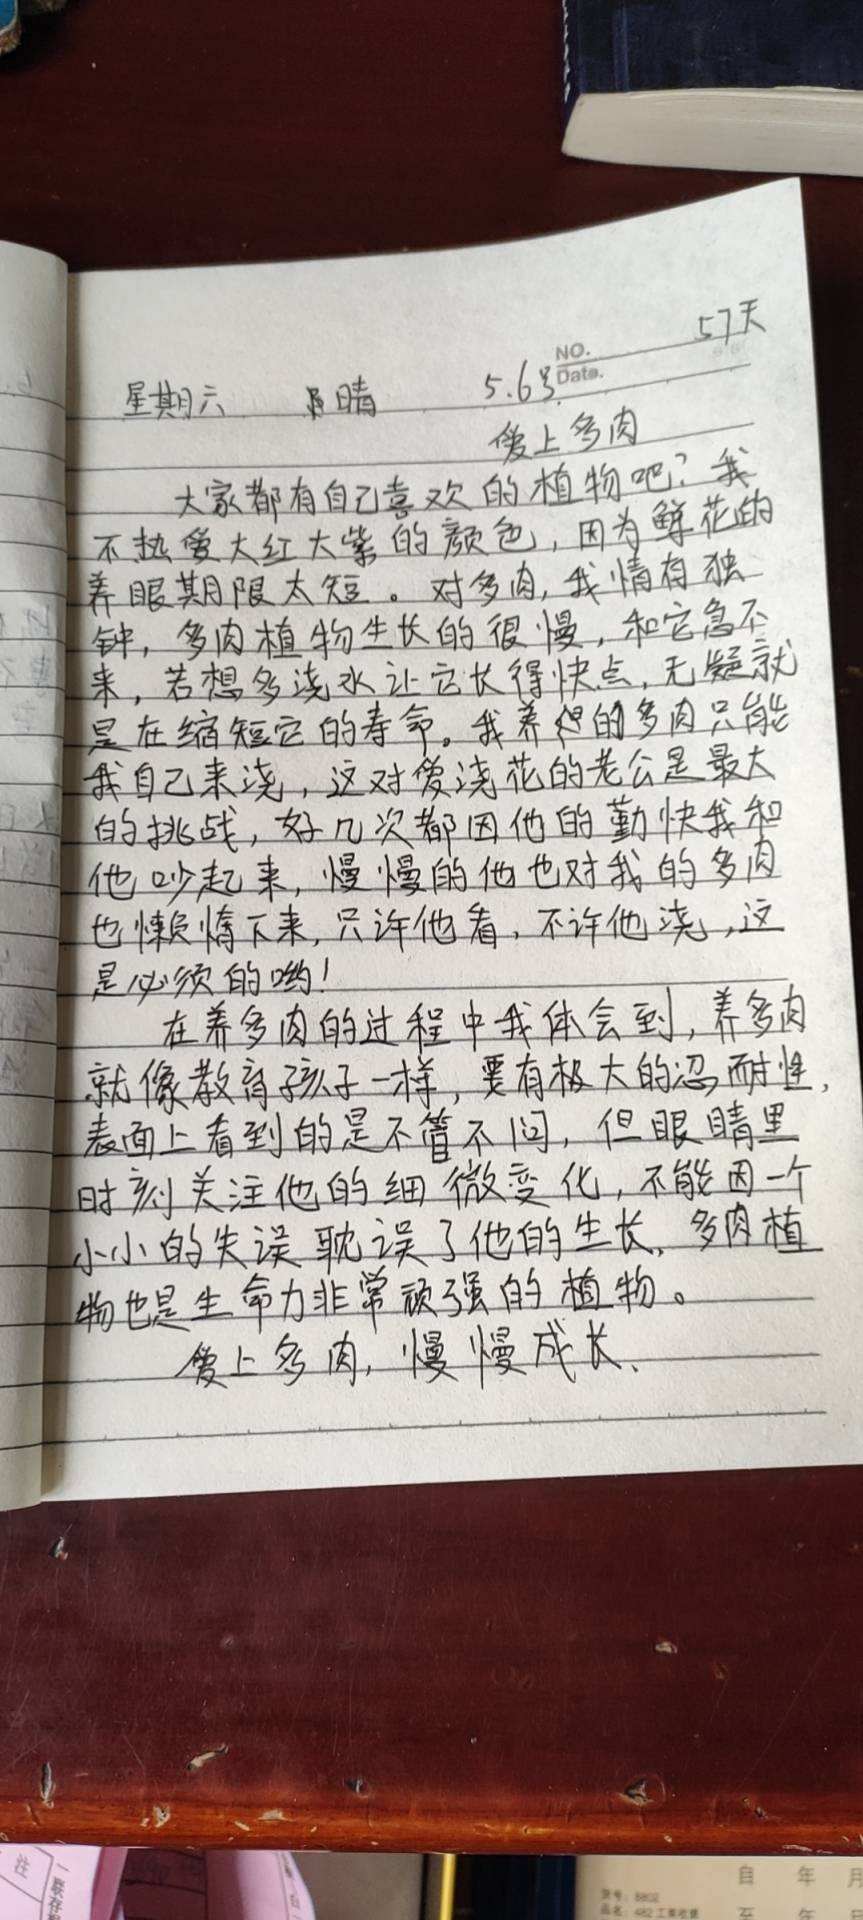 57天
NO.
Date.
星期六 晴 5.6号
爱上多肉
大家都有自己喜欢的植物吧?我
不热爱大红大紫的颜色,因为鲜花的
养眼期限太短。对多肉,我情有独
钟,多肉植物生长的很慢,和它急不
来,若想多浇水让它长得快点,无疑就
是在缩短它的寿命。我养的多肉只能
我自己来浇,这对爱浇花的老公是最大
的挑战,好几次都因他的勤快我和
他吵起来,慢慢的他也对我的多肉
也懒惰下来,只许他看,不许他浇,这
是必须的哟!
在养多肉的过程中我体会到,养多肉
就像教育孩子一样,要有极大的忍耐性,
表面上看到的是不管不问,但眼睛里
时刻关注他的细微变化,不能因一个
小小的失误耽误了他的生长、多肉植
物也是生命力非常顽强的植物。
爱上多肉,慢慢成长、
注
一联存根
自 年 月
货号:8802
品名:482工票收据
至 年 月